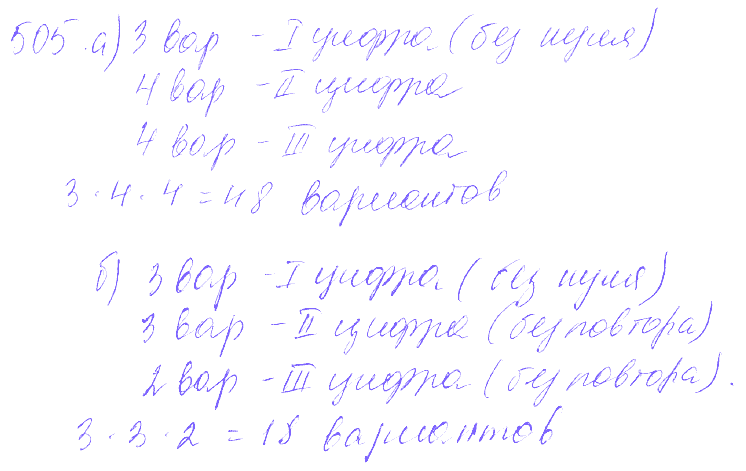 505. а) 3 вар - I цифра (без нуля)
4 вар - II цифра
4 вар - III цифра
3 · 4 · 4 = 48 вариантов
б) 3 вар - I цифра (без нуля)
3 вар - II цифра (без повтора)
2 вар - III цифра (без повтора).
3 · 3 · 2 = 18 вариантов